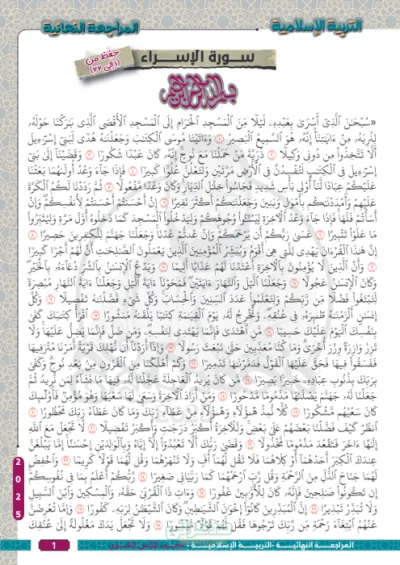 التربية الإسلامية
المراجعة النهائية
سورة الإسراء
حفظ من
(١ إلى ٢٢)
بسم الله الرحمن الرحيم
«سُبْحَٰنَ الَّذِي أَسْرَىٰ بِعَبْدِهِ، لَيْلًا مِّنَ الْمَسْجِدِ الْحَرَامِ إِلَى الْمَسْجِدِ الْأَقْصَا الَّذِي بَٰرَكْنَا حَوْلَهُ،
لِنُرِيَهُ، مِنْ ءَايَٰتِنَا إِنَّهُ، هُوَ السَّمِيعُ الْبَصِيرُ ١ وَءَاتَيْنَا مُوسَى الْكِتَٰبَ وَجَعَلْنَٰهُ هُدًى لِّبَنِي إِسْرَٰءِيلَ
أَلَّا تَتَّخِذُوا مِن دُونِي وَكِيلًا ٢ ذُرِّيَّةَ مَنْ حَمَلْنَا مَعَ نُوحٍ إِنَّهُ، كَانَ عَبْدًا شَكُورًا ٣ وَقَضَيْنَا إِلَىٰ بَنِي
إِسْرَٰءِيلَ فِي الْكِتَٰبِ لَتُفْسِدُنَّ فِي الْأَرْضِ مَرَّتَيْنِ وَلَتَعْلُنَّ عُلُوًّا كَبِيرًا ٤ فَإِذَا جَاءَ وَعْدُ أُولَىٰهُمَا بَعَثْنَا
عَلَيْكُمْ عِبَادًا لَّنَا أُولِي بَأْسٍ شَدِيدٍ فَجَاسُوا خِلَٰلَ الدِّيَارِ وَكَانَ وَعْدًا مَّفْعُولًا ٥ ثُمَّ رَدَدْنَا لَكُمُ الْكَرَّةَ
عَلَيْهِمْ وَأَمْدَدْنَٰكُم بِأَمْوَٰلٍ وَبَنِينَ وَجَعَلْنَٰكُمْ أَكْثَرَ نَفِيرًا ٦ إِنْ أَحْسَنتُمْ أَحْسَنتُمْ لِأَنفُسِكُمْ وَإِنْ
أَسَأْتُمْ فَلَهَا فَإِذَا جَاءَ وَعْدُ الْآخِرَةِ لِيَسُـُٔوا وُجُوهَكُمْ وَلِيَدْخُلُوا الْمَسْجِدَ كَمَا دَخَلُوهُ أَوَّلَ مَرَّةٍ وَلِيُتَبِّرُوا
مَا عَلَوْا تَتْبِيرًا ٧ عَسَىٰ رَبُّكُمْ أَن يَرْحَمَكُمْ وَإِنْ عُدتُّمْ عُدْنَا وَجَعَلْنَا جَهَنَّمَ لِلْكَٰفِرِينَ حَصِيرًا ٨
إِنَّ هَٰذَا الْقُرْءَانَ يَهْدِي لِلَّتِي هِيَ أَقْوَمُ وَيُبَشِّرُ الْمُؤْمِنِينَ الَّذِينَ يَعْمَلُونَ الصَّٰلِحَٰتِ أَنَّ لَهُمْ أَجْرًا كَبِيرًا
٩ وَأَنَّ الَّذِينَ لَا يُؤْمِنُونَ بِالْآخِرَةِ أَعْتَدْنَا لَهُمْ عَذَابًا أَلِيمًا ١٠ وَيَدْعُ الْإِنسَٰنُ بِالشَّرِّ دُعَاءَهُ، بِالْخَيْرِ
وَكَانَ الْإِنسَٰنُ عَجُولًا ١١ وَجَعَلْنَا اللَّيْلَ وَالنَّهَارَ ءَايَتَيْنِ فَمَحَوْنَا ءَايَةَ اللَّيْلِ وَجَعَلْنَا ءَايَةَ النَّهَارِ مُبْصِرَةً
لِّتَبْتَغُوا فَضْلًا مِّن رَّبِّكُمْ وَلِتَعْلَمُوا عَدَدَ السِّنِينَ وَالْحِسَابَ وَكُلَّ شَيْءٍ فَصَّلْنَٰهُ تَفْصِيلًا ١٢ وَكُلَّ
إِنسَٰنٍ أَلْزَمْنَٰهُ طَٰئِرَهُ، فِي عُنُقِهِ، وَنُخْرِجُ لَهُ، يَوْمَ الْقِيَٰمَةِ كِتَٰبًا يَلْقَىٰهُ مَنشُورًا ١٣ اقْرَأْ كِتَٰبَكَ كَفَىٰ
بِنَفْسِكَ الْيَوْمَ عَلَيْكَ حَسِيبًا ١٤ مَّنِ اهْتَدَىٰ فَإِنَّمَا يَهْتَدِي لِنَفْسِهِ، وَمَن ضَلَّ فَإِنَّمَا يَضِلُّ عَلَيْهَا وَلَا
تَزِرُ وَازِرَةٌ وِزْرَ أُخْرَىٰ وَمَا كُنَّا مُعَذِّبِينَ حَتَّىٰ نَبْعَثَ رَسُولًا ١٥ وَإِذَا أَرَدْنَا أَن نُّهْلِكَ قَرْيَةً أَمَرْنَا مُتْرَفِيهَا
فَفَسَقُوا فِيهَا فَحَقَّ عَلَيْهَا الْقَوْلُ فَدَمَّرْنَٰهَا تَدْمِيرًا ١٦ وَكَمْ أَهْلَكْنَا مِنَ الْقُرُونِ مِن بَعْدِ نُوحٍ وَكَفَىٰ
بِرَبِّكَ بِذُنُوبِ عِبَادِهِ، خَبِيرًا بَصِيرًا ١٧ مَّن كَانَ يُرِيدُ الْعَاجِلَةَ عَجَّلْنَا لَهُ، فِيهَا مَا نَشَاءُ لِمَن نُّرِيدُ ثُمَّ
جَعَلْنَا لَهُ، جَهَنَّمَ يَصْلَىٰهَا مَذْمُومًا مَّدْحُورًا ١٨ وَمَنْ أَرَادَ الْآخِرَةَ وَسَعَىٰ لَهَا سَعْيَهَا وَهُوَ مُؤْمِنٌ فَأُولَٰئِكَ
كَانَ سَعْيُهُم مَّشْكُورًا ١٩ كُلًّا نُّمِدُّ هَٰؤُلَاءِ وَهَٰؤُلَاءِ مِنْ عَطَاءِ رَبِّكَ وَمَا كَانَ عَطَاءُ رَبِّكَ مَحْظُورًا ٢٠
انظُرْ كَيْفَ فَضَّلْنَا بَعْضَهُمْ عَلَىٰ بَعْضٍ وَلَلْآخِرَةُ أَكْبَرُ دَرَجَٰتٍ وَأَكْبَرُ تَفْضِيلًا ٢١ لَّا تَجْعَلْ مَعَ اللَّهِ
إِلَٰهًا ءَاخَرَ فَتَقْعُدَ مَذْمُومًا مَّخْذُولًا ٢٢ وَقَضَىٰ رَبُّكَ أَلَّا تَعْبُدُوا إِلَّا إِيَّاهُ وَبِالْوَٰلِدَيْنِ إِحْسَٰنًا إِمَّا يَبْلُغَنَّ
عِندَكَ الْكِبَرَ أَحَدُهُمَا أَوْ كِلَاهُمَا فَلَا تَقُل لَّهُمَا أُفٍّ وَلَا تَنْهَرْهُمَا وَقُل لَّهُمَا قَوْلًا كَرِيمًا ٢٣ وَاخْفِضْ
لَهُمَا جَنَاحَ الذُّلِّ مِنَ الرَّحْمَةِ وَقُل رَّبِّ ارْحَمْهُمَا كَمَا رَبَّيَانِي صَغِيرًا ٢٤ رَّبُّكُمْ أَعْلَمُ بِمَا فِي نُفُوسِكُمْ
إِن تَكُونُوا صَٰلِحِينَ فَإِنَّهُ، كَانَ لِلْأَوَّٰبِينَ غَفُورًا ٢٥ وَءَاتِ ذَا الْقُرْبَىٰ حَقَّهُ، وَالْمِسْكِينَ وَابْنَ السَّبِيلِ
وَلَا تُبَذِّرْ تَبْذِيرًا ٢٦ إِنَّ الْمُبَذِّرِينَ كَانُوا إِخْوَٰنَ الشَّيَٰطِينِ وَكَانَ الشَّيْطَٰنُ لِرَبِّهِ، كَفُورًا ٢٧ وَإِمَّا تُعْرِضَنَّ
عَنْهُمُ ابْتِغَاءَ رَحْمَةٍ مِّن رَّبِّكَ تَرْجُوهَا فَقُل لَّهُمْ قَوْلًا مَّيْسُورًا ٢٨ وَلَا تَجْعَلْ يَدَكَ مَغْلُولَةً إِلَىٰ عُنُقِكَ
2025
المراجعة النهائية - التربية الإسلامية -
1